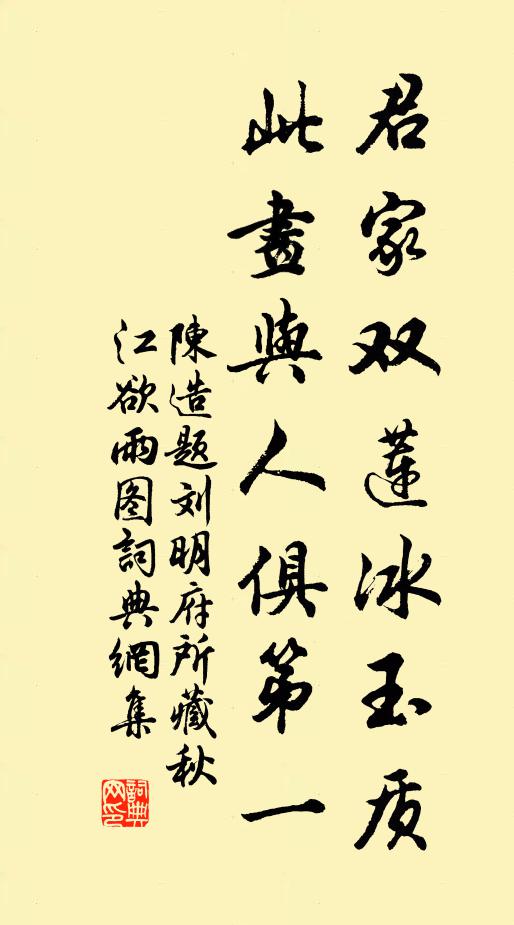 君家双蓮冰玉质
此畫與人俱第一
陳造题刘明府所藏秋
江欲雨图詞典網集
詞典网印